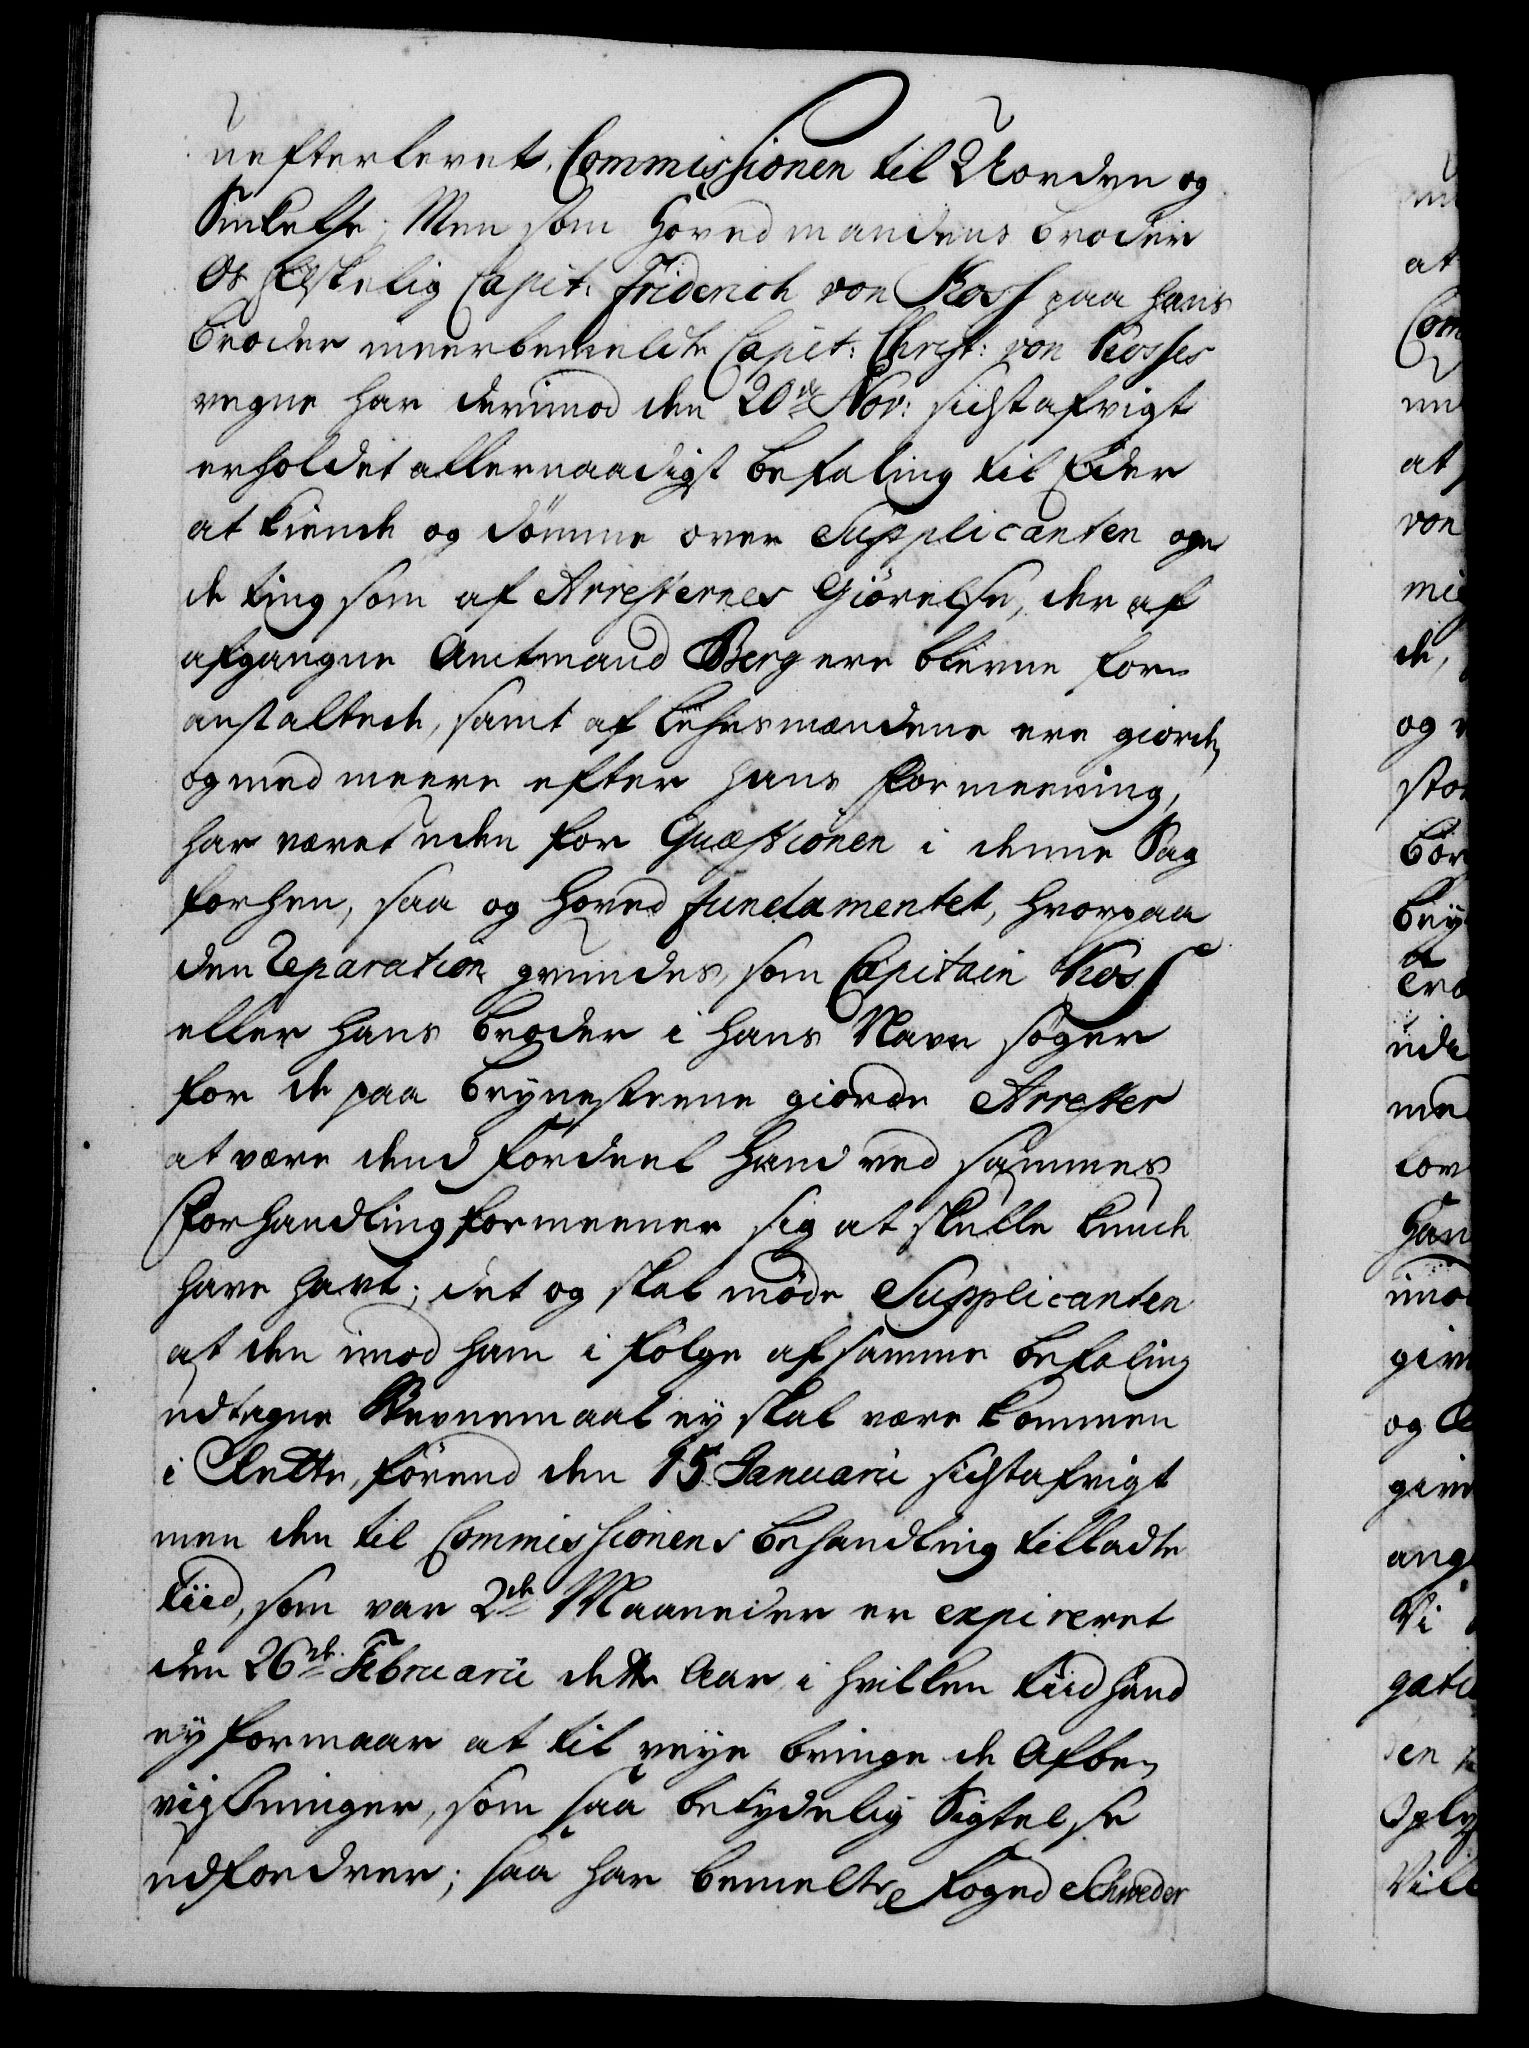 uefterlevet, Commissionen til Uorden og
Sinkelse; Men som Hovedmandens broder
Os Elskelig Capit: Friderich von Koss paa hans
broder meerbemeldte Capit: Christ: von Kosses
vegne har derimod den 20de Nov: sidstafvigt
erholdet allernaadigst befaling til Eder
at kiende og dömme over Supplicanten og
de ting som af Arresternes Giörelse, der af
afgangne Amtmand Berg ere blevne for-
anstaltede, samt af Lehnsmændene ere giorde,
og med meere efter hans formeening,
har været uden for Quæstionen i denne Sag
forhen, saa og hoved fundamentet, hvorpaa
den Reparation grundes, som Capitain Koss
eller hans broder i hans Navn söger
for de paa brynesteene giorde Arrester
at være dend fordeel hand ved sammes
forhandling formeener sig at skulle kunde
have havt; det og skal möde Supplicanten
at den imod ham i fölge af samme befaling
udtagne Stevnemaal ey skal være kommen
i Rette, förend den 15 Januarii sidstafvigt
men den til Commissionens behandling tilladte
tiid, som var 2de Maaneder er expireret
den 26de Februarii dette Aar, i hvilken tiid hand
ey formaar at til veye bringe de Afbe-
viisninger, som saa betydelig Sigtelse
udfordrer; saa har bemelte Foged Schweder